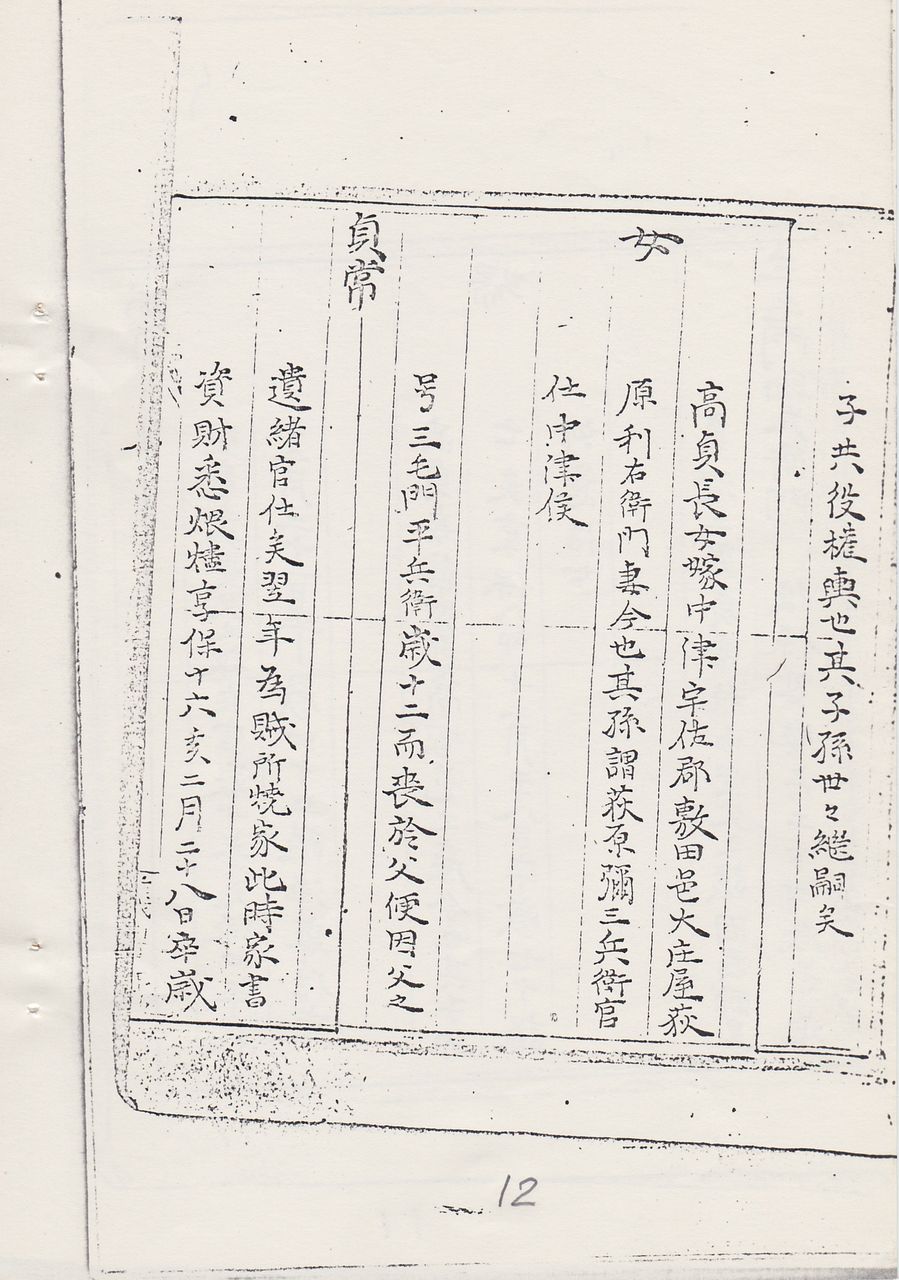 子共役權輿也其子孫世々繼嗣矣
女
高貞長女嫁中津宇佐郡敷田邑大庄屋荻
原利右衛門妻今也其孫謂荻原彌三兵衛官
仕中津侯
貞常
号三毛門平兵衛歳十二而喪於父便因父之
遺緒官仕矣翌年為賊所燒家此時家書
資財悉煨燼享保十六亥二月二十八日卒歳
12